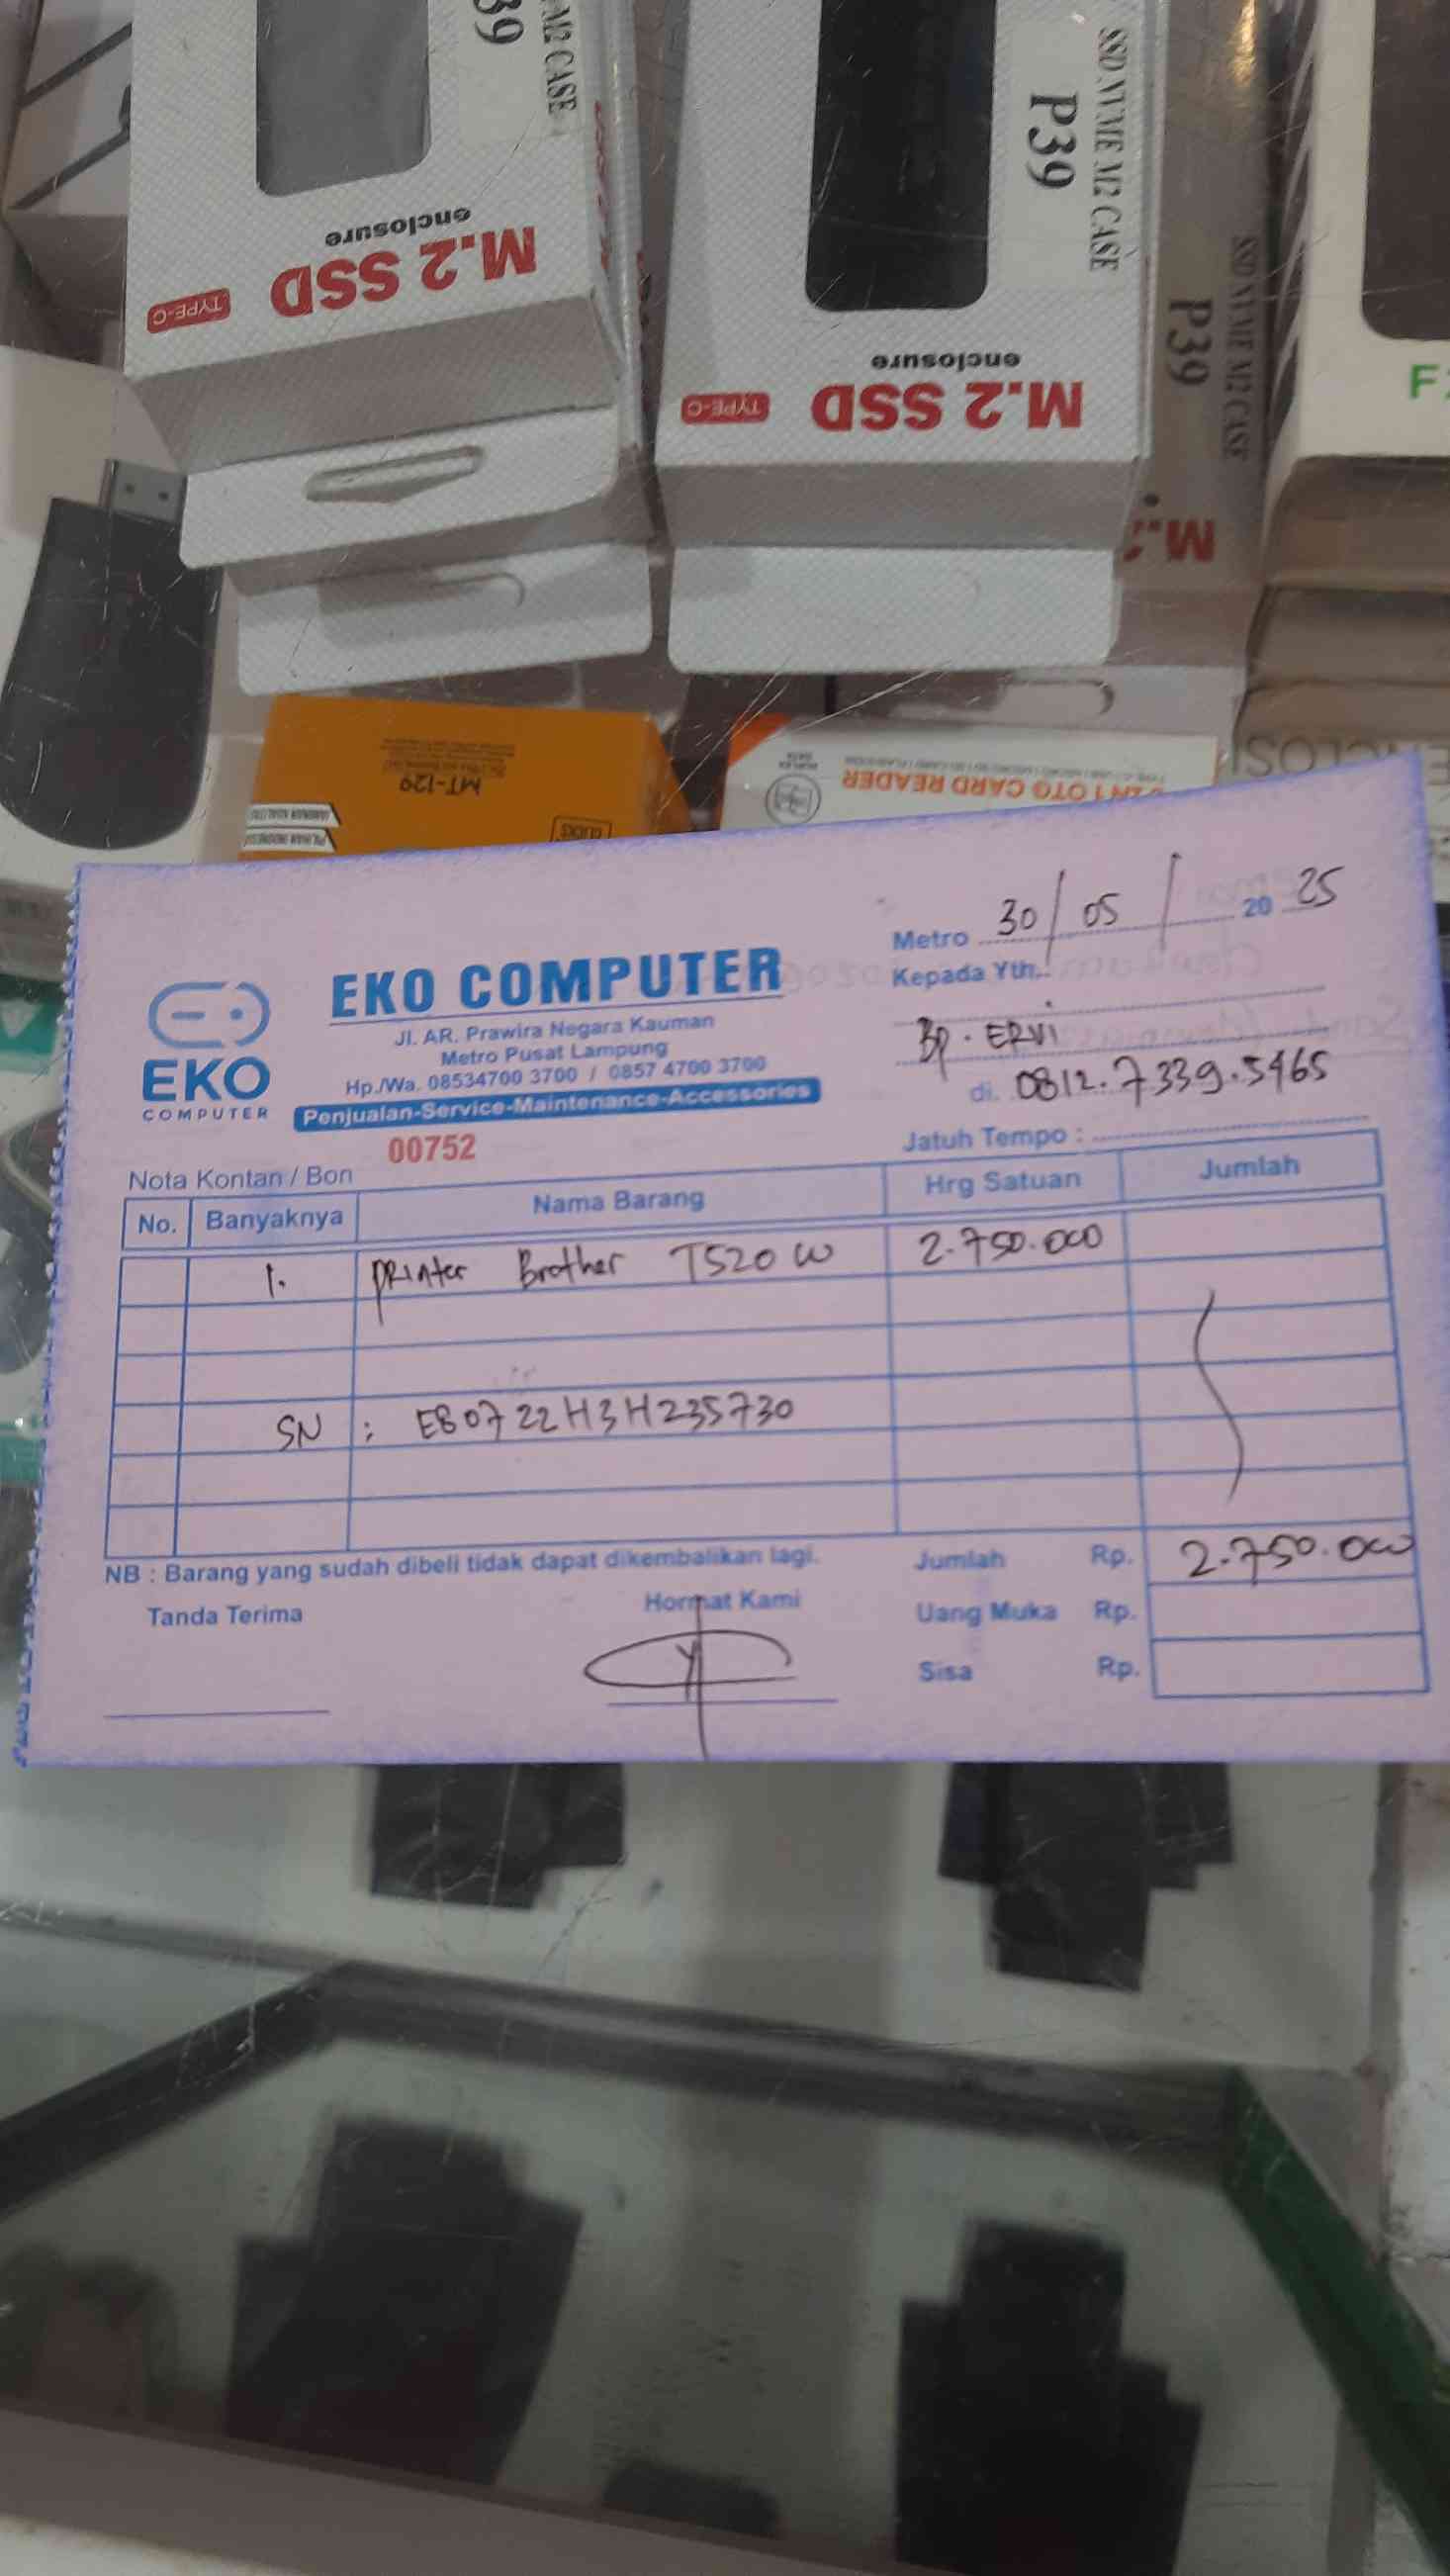 39
M2 CASE
enclosure
M.2 SSD
TYPE-C
SSD NVME M2 CASE
P39
enclosure
M.2 SSD
TYPE-C
SSD NVME M2 CASE
P39
M.2
F
MT-129
PILIHAN INDONESIA
OTG CARD READER
Metro 30/05/ 20 25
Kepada Yth.
Bp. ERVI
di. 0812.7339.5465
Jatuh Tempo :
EKO COMPUTER
EKO COMPUTER
Jl. AR. Prawira Negara Kauman
Metro Pusat Lampung
Hp./Wa. 08534700 3700 / 0857 4700 3700
Penjualan-Service-Maintenance-Accessories
00752
Nota Kontan / Bon
No. Banyaknya Nama Barang Hrg Satuan Jumlah
1. printer Brother T520 W 2.750.000
SN : E80722H3H235730
NB : Barang yang sudah dibeli tidak dapat dikembalikan lagi.
Jumlah Rp. 2.750.000
Tanda Terima Hormat Kami
Uang Muka Rp.
Sisa Rp.